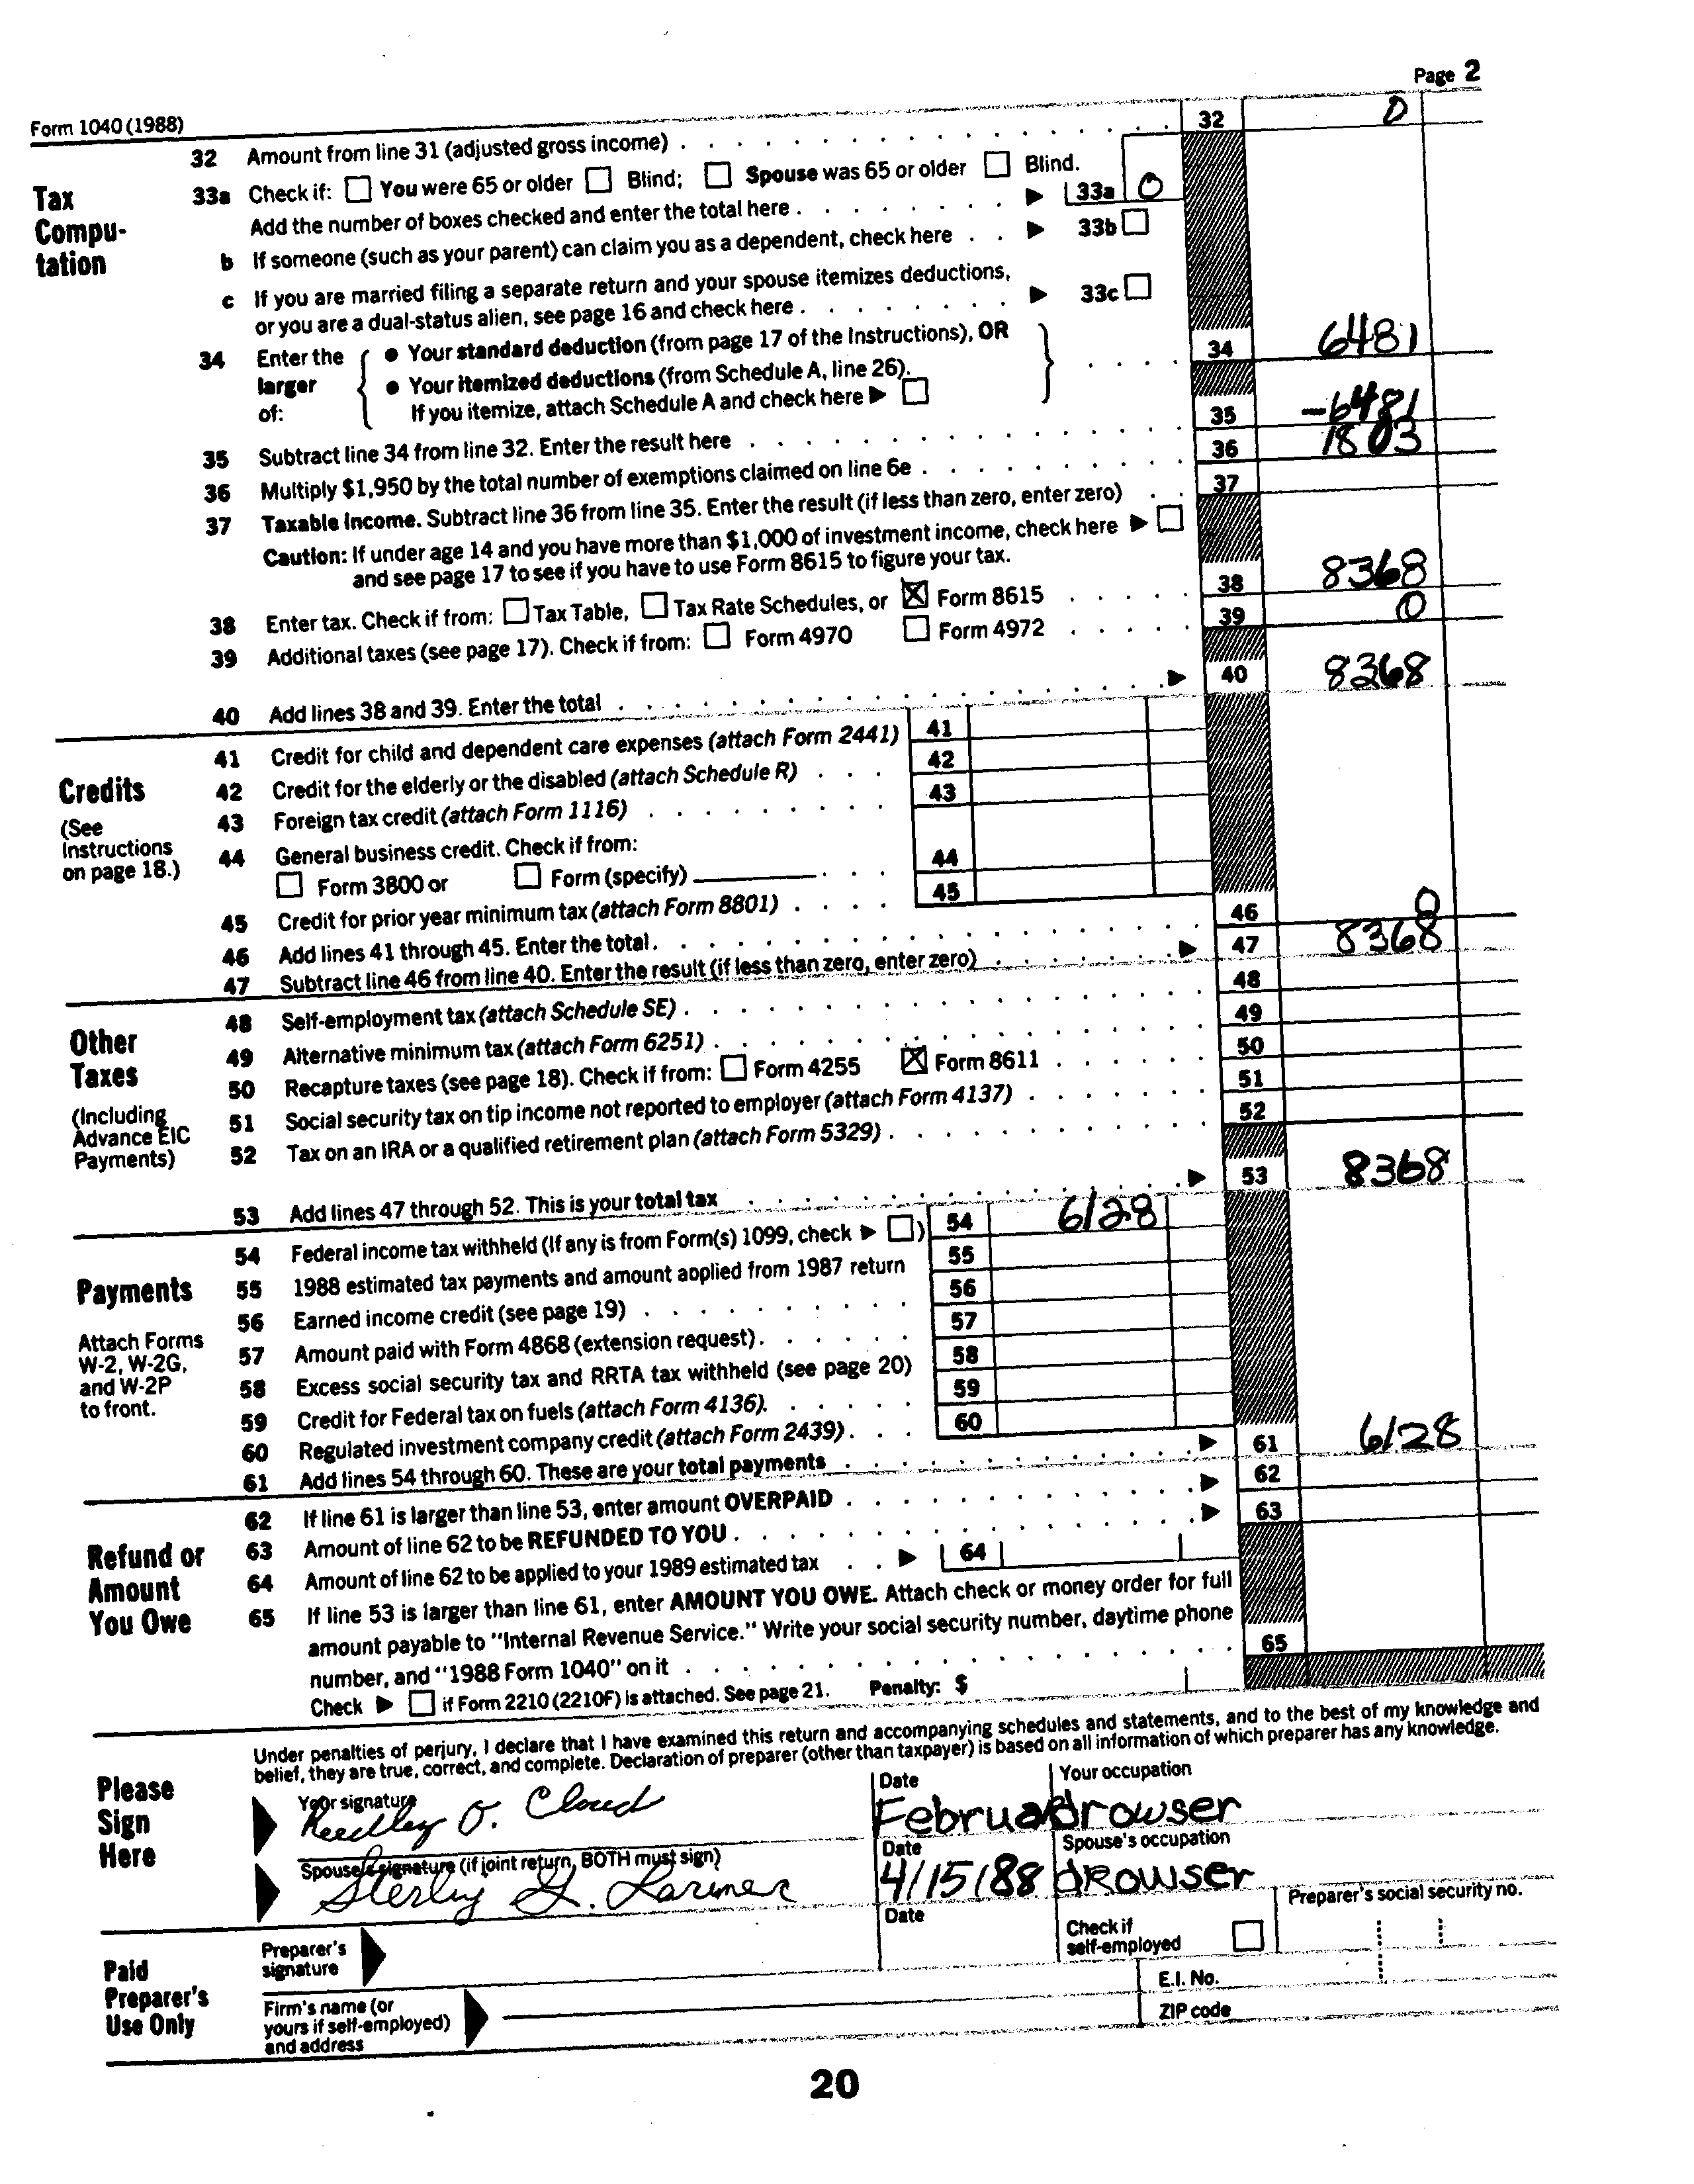 Page 2
Form 1040 (1988)
32 Amount from line 31 (adjusted gross income) 32 0
Tax Compu-tation
33a Check if: You were 65 or older Blind; Spouse was 65 or older Blind.
Add the number of boxes checked and enter the total here 33a 0
b If someone (such as your parent) can claim you as a dependent, check here 33b
c If you are married filing a separate return and your spouse itemizes deductions,
or you are a dual-status alien, see page 16 and check here 33c
34 Enter the larger of: Your standard deduction (from page 17 of the Instructions), OR
Your itemized deductions (from Schedule A, line 26).
If you itemize, attach Schedule A and check here 34 6481
35 Subtract line 34 from line 32. Enter the result here 35 -6481
36 Multiply $1,950 by the total number of exemptions claimed on line 6e 36 1803
37 Taxable income. Subtract line 36 from line 35. Enter the result (if less than zero, enter zero) 37
Caution: If under age 14 and you have more than $1,000 of investment income, check here
and see page 17 to see if you have to use Form 8615 to figure your tax.
38 Enter tax. Check if from: Tax Table, Tax Rate Schedules, or Form 8615 38 8368
39 Additional taxes (see page 17). Check if from: Form 4970 Form 4972 39 0
40 Add lines 38 and 39. Enter the total 40 8368
Credits
(See Instructions on page 18.)
41 Credit for child and dependent care expenses (attach Form 2441) 41
42 Credit for the elderly or the disabled (attach Schedule R) 42
43 Foreign tax credit (attach Form 1116) 43
44 General business credit. Check if from:
Form 3800 or Form (specify) 44
45 Credit for prior year minimum tax (attach Form 8801) 45
46 Add lines 41 through 45. Enter the total. 46 0
47 Subtract line 46 from line 40. Enter the result (if less than zero, enter zero) 47 8368
Other Taxes
(Including Advance EIC Payments)
48 Self-employment tax (attach Schedule SE) 48
49 Alternative minimum tax (attach Form 6251) 49
50 Recapture taxes (see page 18). Check if from: Form 4255 Form 8611 50
51 Social security tax on tip income not reported to employer (attach Form 4137) 51
52 Tax on an IRA or a qualified retirement plan (attach Form 5329) 52
53 Add lines 47 through 52. This is your total tax 53 8368
Payments
Attach Forms W-2, W-2G, and W-2P to front.
54 Federal income tax withheld (If any is from Form(s) 1099, check ) 54 6128
55 1988 estimated tax payments and amount applied from 1987 return 55
56 Earned income credit (see page 19) 56
57 Amount paid with Form 4868 (extension request) 57
58 Excess social security tax and RRTA tax withheld (see page 20) 58
59 Credit for Federal tax on fuels (attach Form 4136). 59
60 Regulated investment company credit (attach Form 2439) 60
61 Add lines 54 through 60. These are your total payments 61 6128
Refund or Amount You Owe
62 If line 61 is larger than line 53, enter amount OVERPAID 62
63 Amount of line 62 to be REFUNDED TO YOU 63
64 Amount of line 62 to be applied to your 1989 estimated tax 64
65 If line 53 is larger than line 61, enter AMOUNT YOU OWE. Attach check or money order for full
amount payable to "Internal Revenue Service." Write your social security number, daytime phone
number, and "1988 Form 1040" on it 65
Check if Form 2210 (2210F) is attached. See page 21. Penalty: $
Please Sign Here
Under penalties of perjury, I declare that I have examined this return and accompanying schedules and statements, and to the best of my knowledge and
belief, they are true, correct, and complete. Declaration of preparer (other than taxpayer) is based on all information of which preparer has any knowledge.
Your signature Date Your occupation
Reedley O. Cloud Februa drowser
Spouse's signature (if joint return, BOTH must sign) Date Spouse's occupation
Sterling G. Larimer 4/15/88 dRowser
Paid Preparer's Use Only
Preparer's signature Date Check if self-employed Preparer's social security no.
Firm's name (or yours if self-employed) and address E.I. No.
ZIP code
20